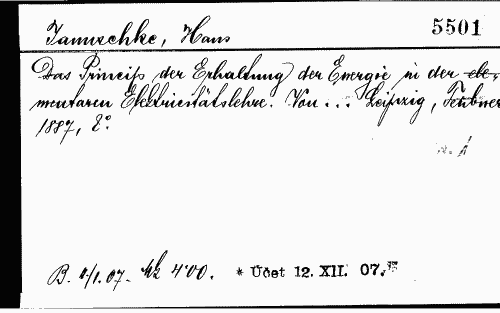 Januschke, Hans 5501
Das Princip der Erhaltung der Energie in der ele-
mentaren Elektricitätslehre. Von... Leipzig, Teubner
1887, 8°.
B. 9/1.07. Mk 4'00. * Učet 12. XII. 07.